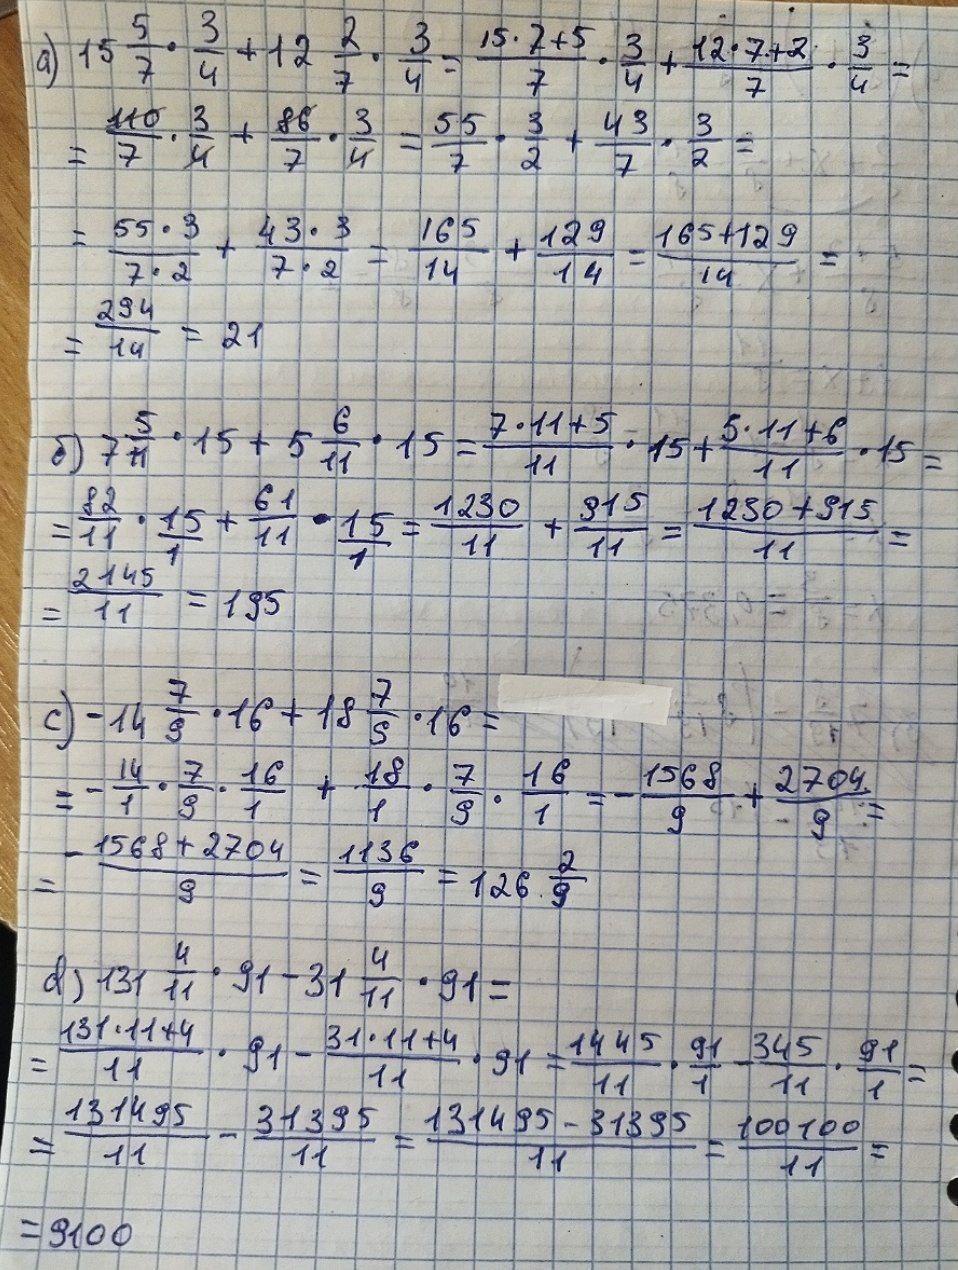 а) 15 5/7 · 3/4 + 12 2/7 · 3/4 = (15·7+5)/7 · 3/4 + (12·7+2)/7 · 3/4 =
= 110/7 · 3/4 + 86/7 · 3/4 = 55/7 · 3/2 + 43/7 · 3/2 =
= (55·3)/(7·2) + (43·3)/(7·2) = 165/14 + 129/14 = (165+129)/14 =
= 294/14 = 21
б) 7 5/11 · 15 + 5 6/11 · 15 = (7·11+5)/11 · 15 + (5·11+6)/11 · 15 =
= 82/11 · 15/1 + 61/11 · 15/1 = 1230/11 + 915/11 = (1230+915)/11 =
= 2145/11 = 195
c) -14 7/9 · 16 + 18 7/9 · 16 =
= - 14/1 · 7/9 · 16/1 + 18/1 · 7/9 · 16/1 = - 1568/9 + 2704/9 =
= (-1568+2704)/9 = 1136/9 = 126 2/9
d) 131 4/11 · 91 - 31 4/11 · 91 =
= (131·11+4)/11 · 91 - (31·11+4)/11 · 91 = 1445/11 · 91/1 - 345/11 · 91/1 =
= 131495/11 - 31395/11 = (131495-31395)/11 = 100100/11 =
= 9100